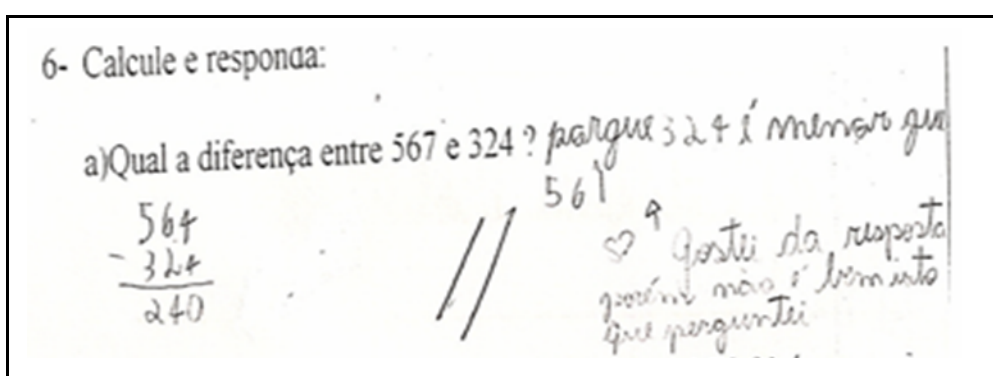 6- Calcule e responda:
a)Qual a diferença entre 567 e 324 ? porque 324 é menor que
561
564
- 324
240
♡ Gostei da resposta
porém não é bem isto
que perguntei